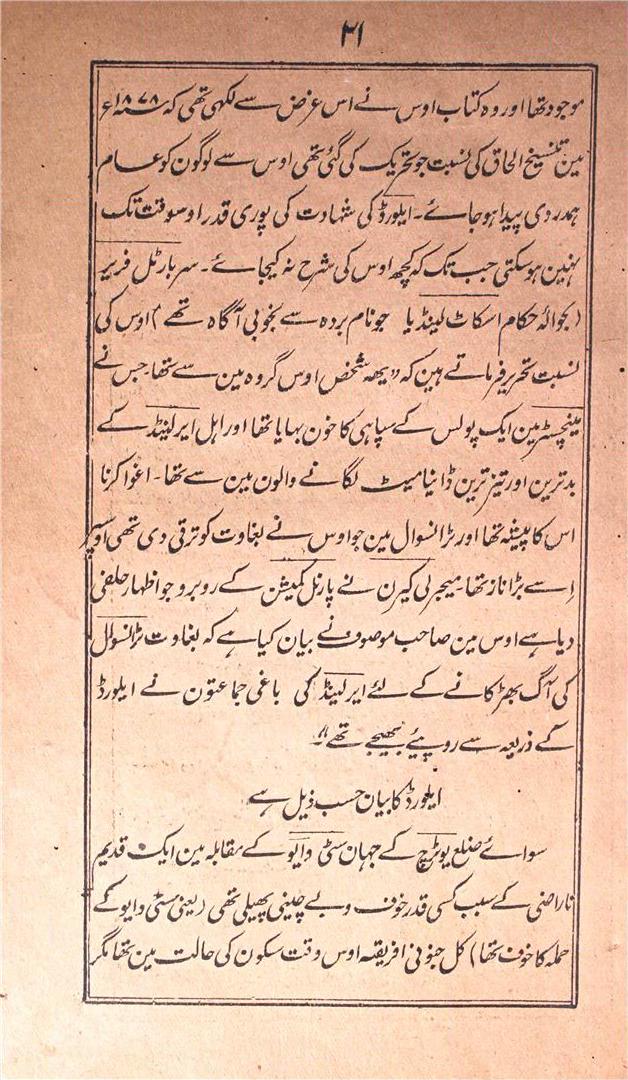 ۲۱
موجود تھا اور وہ کتاب اوس نے اس غرض سے لکہی تھی کہ ۱۸۷۸ء
مین تنسیخ الحاق کی نسبت جو تحریک کی گئی تھی اوس سے لوگون کو عام
ہمدردی پیدا ہو جائے۔ ایلورڈ کی شہاوت کی پوری قدر اوسوقت تک
نہین ہوسکتی جب تک کہ کچھ اوس کی شرح نہ کیجائے۔ سر بارٹل فریر
(بحوالہ حکام اسکاٹ لینڈ یا جو نام بردہ سے بخوبی آگاہ تھے) اوس کی
نسبت تحریر فرماتے ہین کہ "یہہ شخص اوس گروہ مین سے تھا جس نے
مینچسٹر مین ایک پولس کے سپاہی کا خون بہایا تھا اور اہل ایرلینڈ کے
بدترین اور تیز ترین ڈائنامیٹ لگانے والون مین سے تھا۔ اغوا کرنا
اس کا پیشہ تھا اور ٹرانسوال مین جو اوس نے بغاوت کو ترقی دی تھی اوسپر
اِسے بڑا ناز تھا۔ میجر لی کیرن نے پارنل کمیشن کے روبرو جو اظہار حلفی
دیا ہے اوس مین صاحب موصوف نے بیان کیا ہے کہ بغاوت ٹرانسوال
کی آگ بھڑکانے کے لئے ایرلینڈ کی باغی جماعتون نے ایلورڈ
کے ذریعہ سے روپیئے بھیجے تھے"۔
ایلورڈ کا بیان حسب ذیل ہے
سوائے ضلع یوٹرچ کے جہان سٹی وایو کے مقابلہ مین ایک قدیم
ناراضی کے سبب کسی قدر خوف و بے چینی پھیلی تھی (یعنی سٹی وایو کے
حملہ کا خوف تھا) کل جنوبی افریقہ اوس وقت سکون کی حالت مین تھا مگر